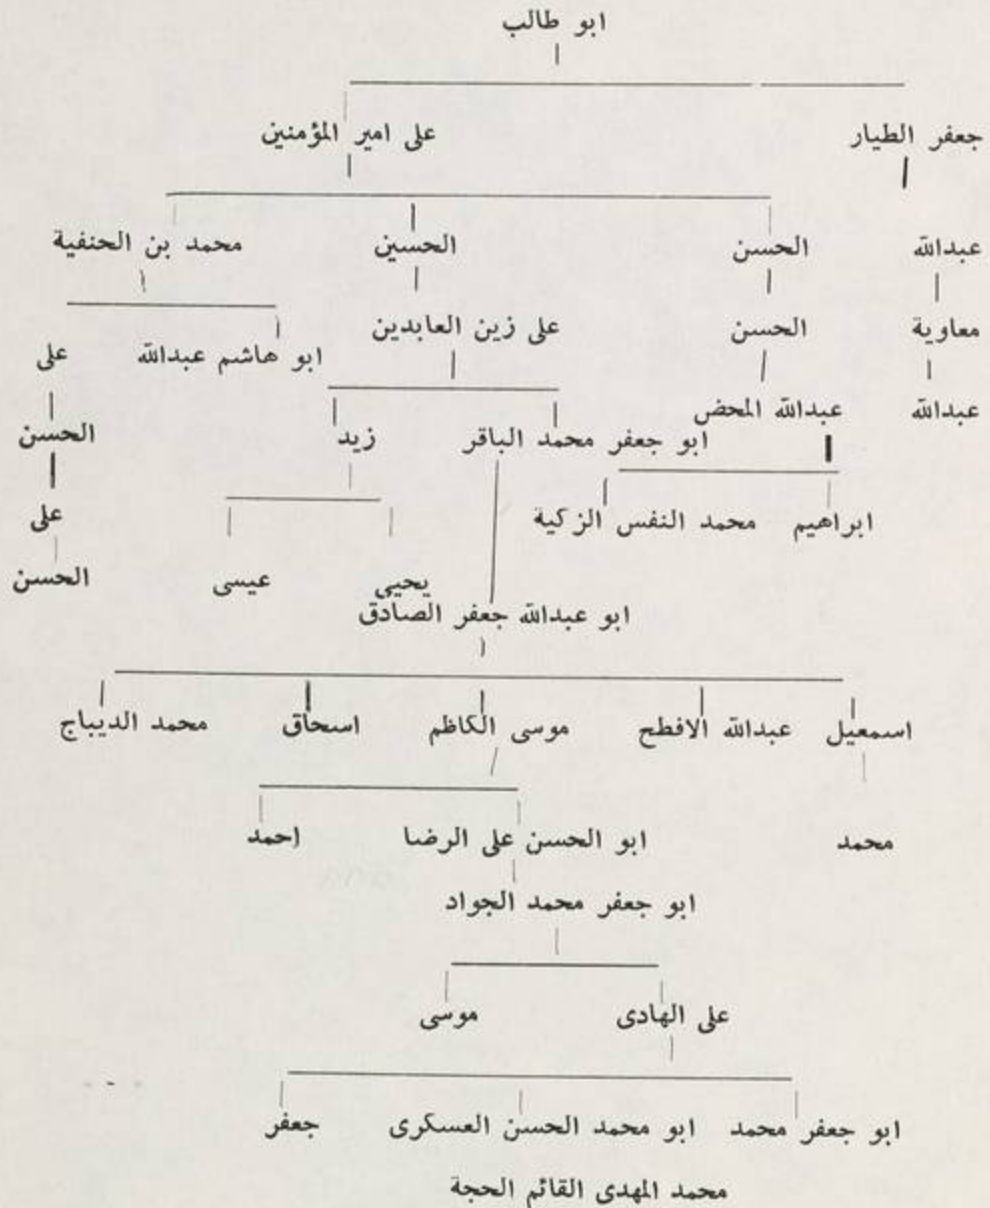 ابو طالب
جعفر الطيار على امير المؤمنين
عبدالله الحسن الحسين محمد بن الحنفية
معاوية الحسن على زين العابدين
ابو هاشم عبدالله على
عبدالله عبدالله المحض
ابو جعفر محمد الباقر زيد الحسن
ابراهيم محمد النفس الزكية على
يحيى عيسى الحسن
ابو عبدالله جعفر الصادق
اسمعيل عبدالله الافطح موسى الكاظم اسحاق محمد الديباج
محمد ابو الحسن على الرضا احمد
ابو جعفر محمد الجواد
على الهادى موسى
ابو جعفر محمد ابو محمد الحسن العسكرى جعفر
محمد المهدى القائم الحجة